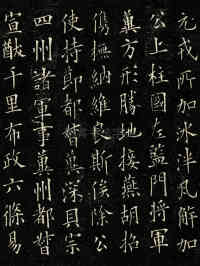 元戎所加冰泮瓦解加
公上柱國左監門將軍
冀方形勝地接燕胡招
攜撫納維良斯俟除公
使持節都督冀深貝宗
四州諸軍事冀州都督
宣猷千里布政六條易